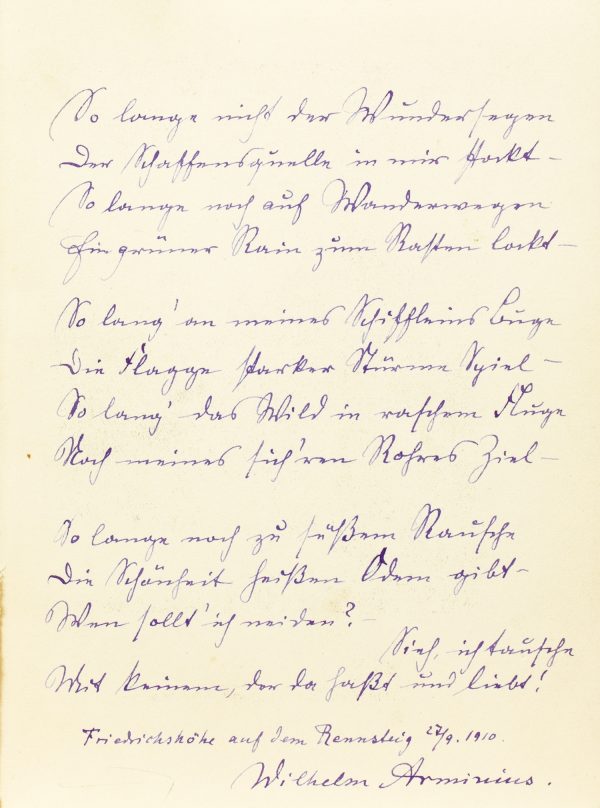 So lange nicht der Wundersegen
Der Schaffensquelle in mir stockt –
So lange noch auf Wanderwegen
Ein grüner Rain zum Rasten lockt –
So lang' an meines Schiffleins Buge
Die Flagge starker Stürme Spiel –
So lang' das Wild in raschem Fluge
Noch meines sich'ren Rohres Ziel –
So lange noch zu süßem Rausche
Die Schönheit heißen Odem gibt –
Wen sollt' ich neiden? –
Sieh, ich tausche
Mit keinem, der da haßt und liebt!
Friedrichshöhe auf dem Rennsteig 27/9. 1910.
Wilhelm Arminius.